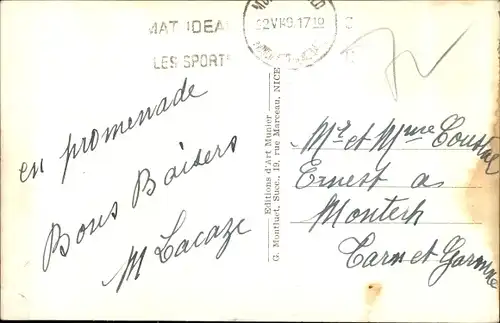 MAT IDEA
LES SPORT
en promenade
Bons Baisers
M Lacaze
Editions d'Art Munier
G. Monthuet, Succ., 19, rue Marceau, NICE
Mr et Mme Coustal
Ernest a
Montech
Tarn et Garonne